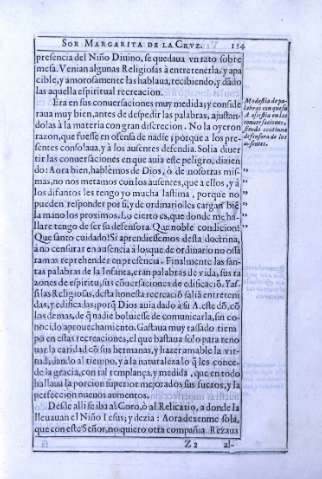 SOR MARGARITA DE LA CRVZ. 154
presencia del Niño Diuino, se quedaua vn rato sobre
mesa. Venian algunas Religiosas à entretenerla, y apa
cible, y amorosamente las hablaua, recibiendo, y dādo
las aquella espiritual recreacion.
Era en sus conuersaciones muy medida, y conside
raua muy bien, antes de despedir las palabras, ajustan-
dolas à la materia con gran discrecion. No la oyeron
razon, que fuesse en ofensa de nadie; porque a los pre-
sentes consolaua, y à los ausentes defendia. Solia diuer
tir las conuersaciones en que auia este peligro, dizien
do: Aora bien, hablemos de Dios, ò de nosotras mis-
mas, no nos metamos con los ausentes, que a ellos, y à
los difuntos les tengo yo mucha lastima, porque no
pueden responder por si, y de ordinario les cargan biē
la mano los proximos. Lo cierto es, que donde me ha-
llare tengo de ser su defensora. Que noble condicion!
Que santo cuidado! Si aprendiessemos desta doctrina,
à no censurar en ausencia à los que de ordinario no osà
ramos reprehender en presencia. Finalmente las san-
tas palabras de la Infanta, eran palabras de vida, sus ra
zones de espiritu, sus cōuersaciones de edificaciō. Yas-
si las Religiosas, desta honesta recreaciō saliā entreteni
das, y edificadas; porq̄ Dios auia dado à su A. este dō, cō
las demas, de q̄ nadie boluiesse de comunicarla, sin co-
nocido aprouechamiento. Gastaua muy tassado tiem-
po en estas recreaciones, el que bastaua solo para reno
uar la caridad cō sus hermanas, y hazer amable la vir-
tud, dando al tiempo, y a la naturaleza lo q̄ les conce-
de la gracia, con tal templança, y medida, que en todo
hallaua la porcion superior mejorados sus sucessos, y la
perfeccion nueuos aumentos.
Desde alli se iba al Coro, ò al Relicario, a donde la
lleuauan el Niño Iesus; y dezia: Aora dexenme sola,
que con este Señor, no quiero otra compañia. Rezaua
Z 2 al-
Modestia de pa-
labras con que su
A. assistia en las
conuersaciones,
siendo continua
defensora de los
ausentes.